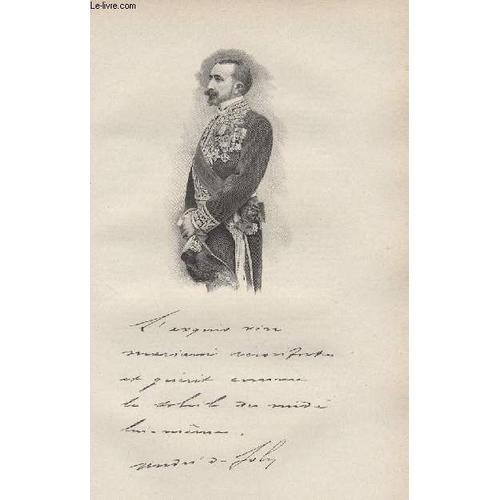 Le-livre.com
L'exquis vin
mariani réconforte
et guérit comme
le soleil du midi
lui-même.
André de Joly